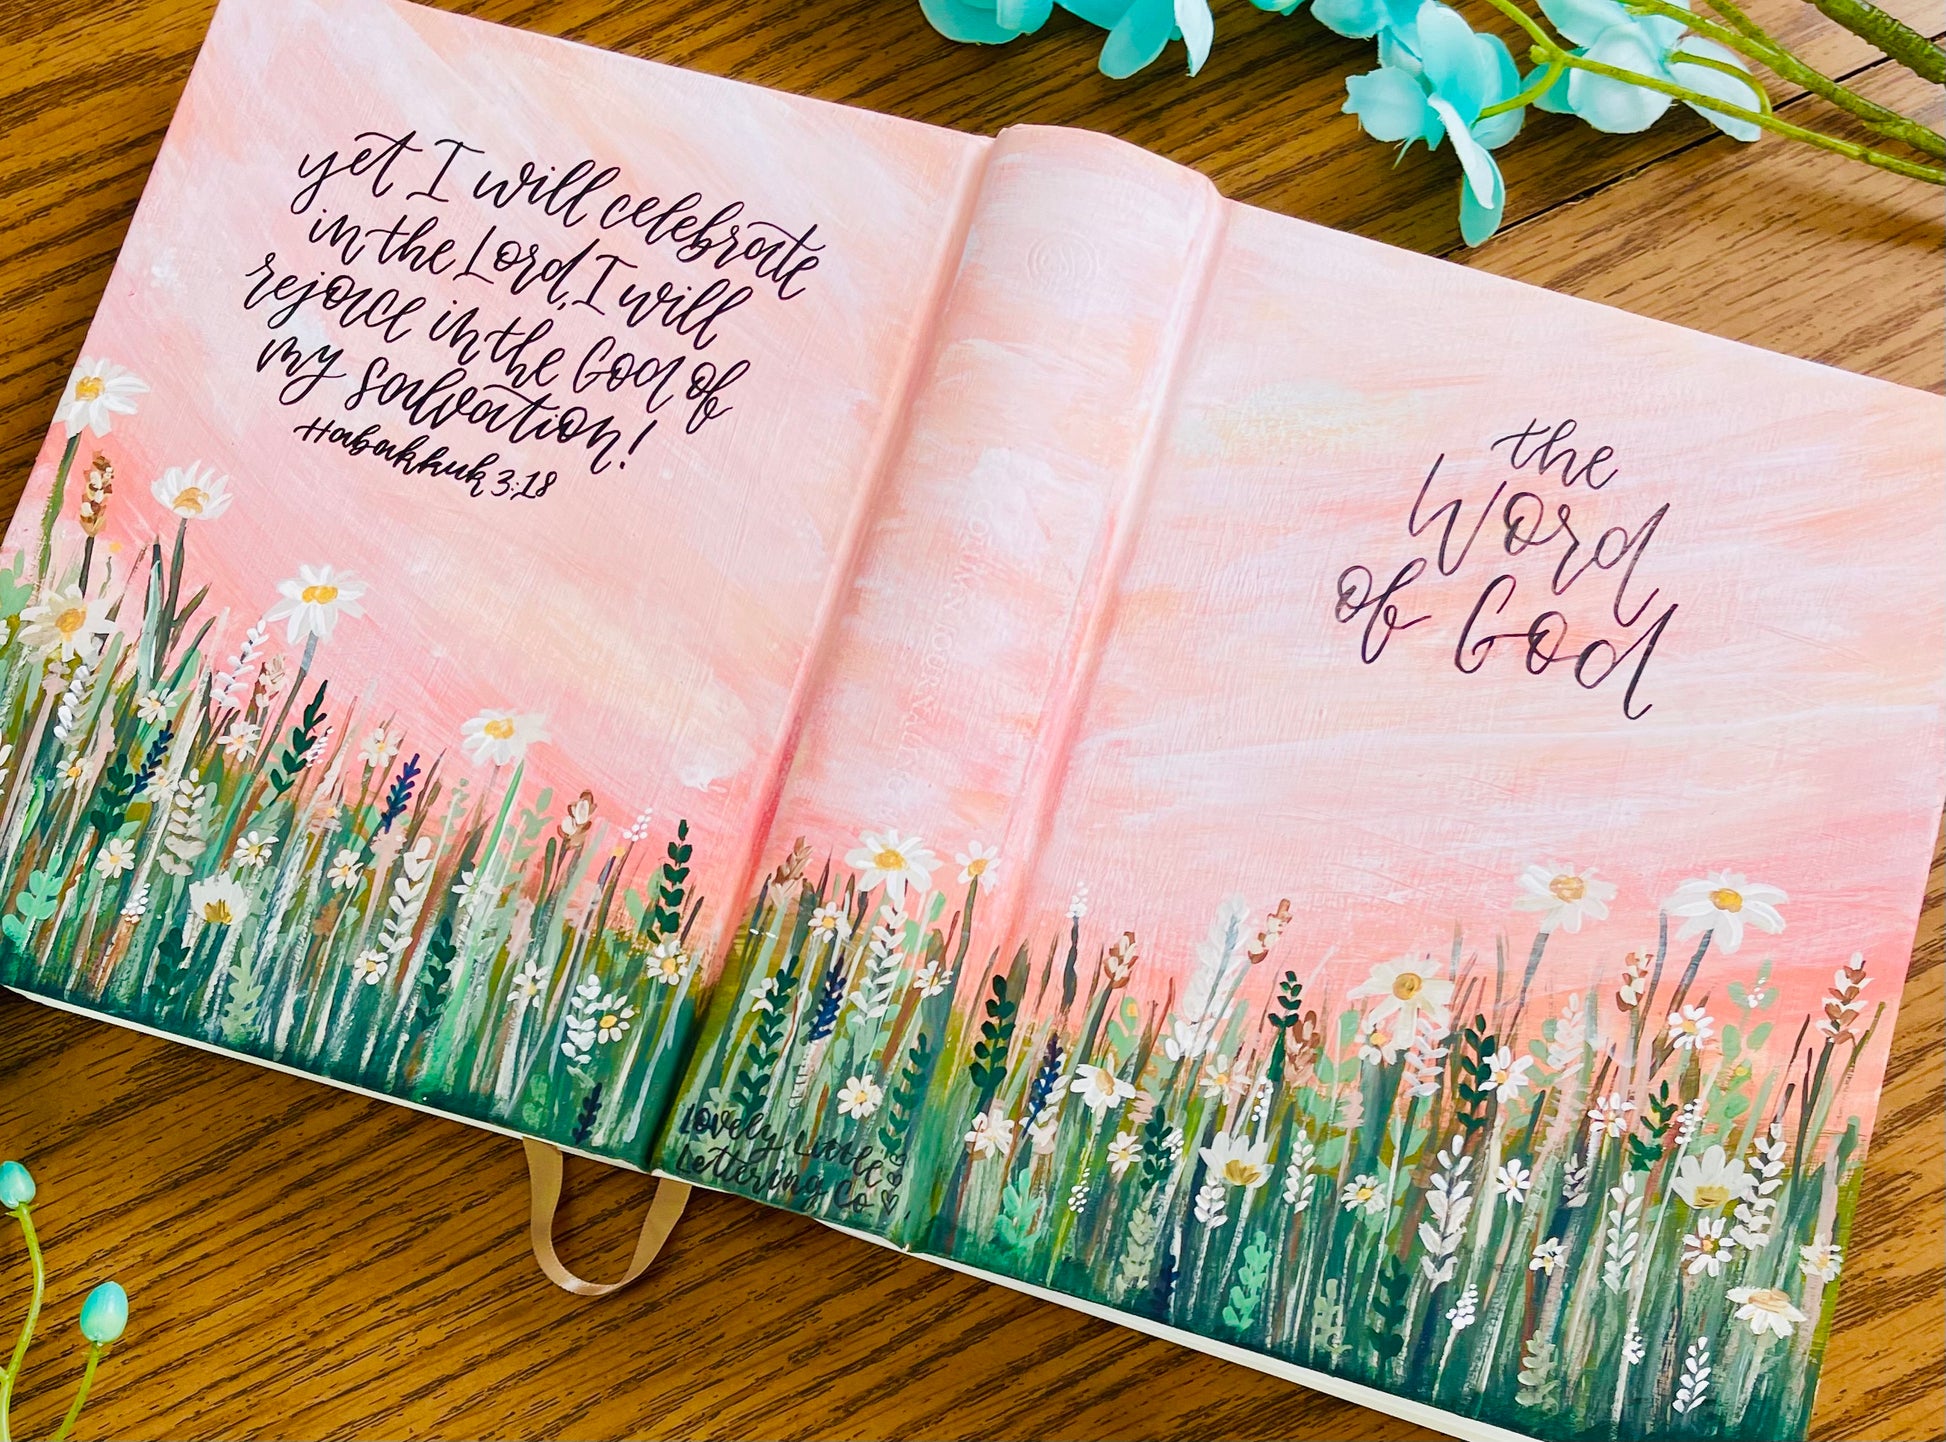 yet I will celebrate
in the Lord, I will
rejoice in the God of
my salvation!
Habakkuk 3:18
JOURNAL
Lovely Little
Lettering Co
the
Word
of God